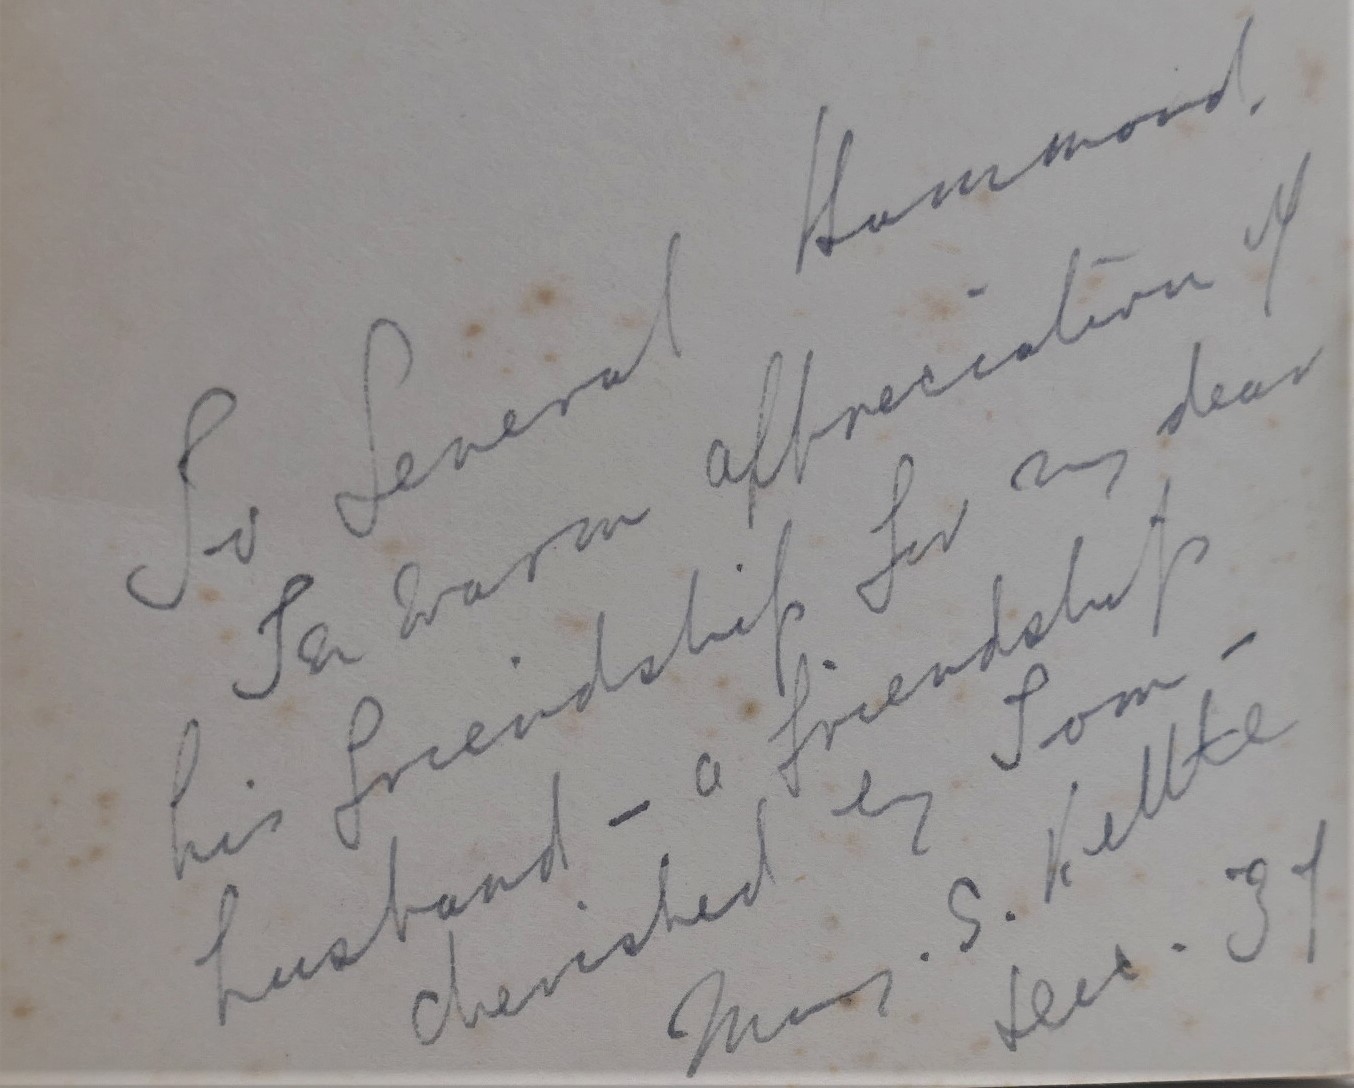 To General Hammond.
In warm appreciation of
his friendship for my dear
husband - a friendship
cherished by Tom -
Mary. S. Kettle
Dec. 31